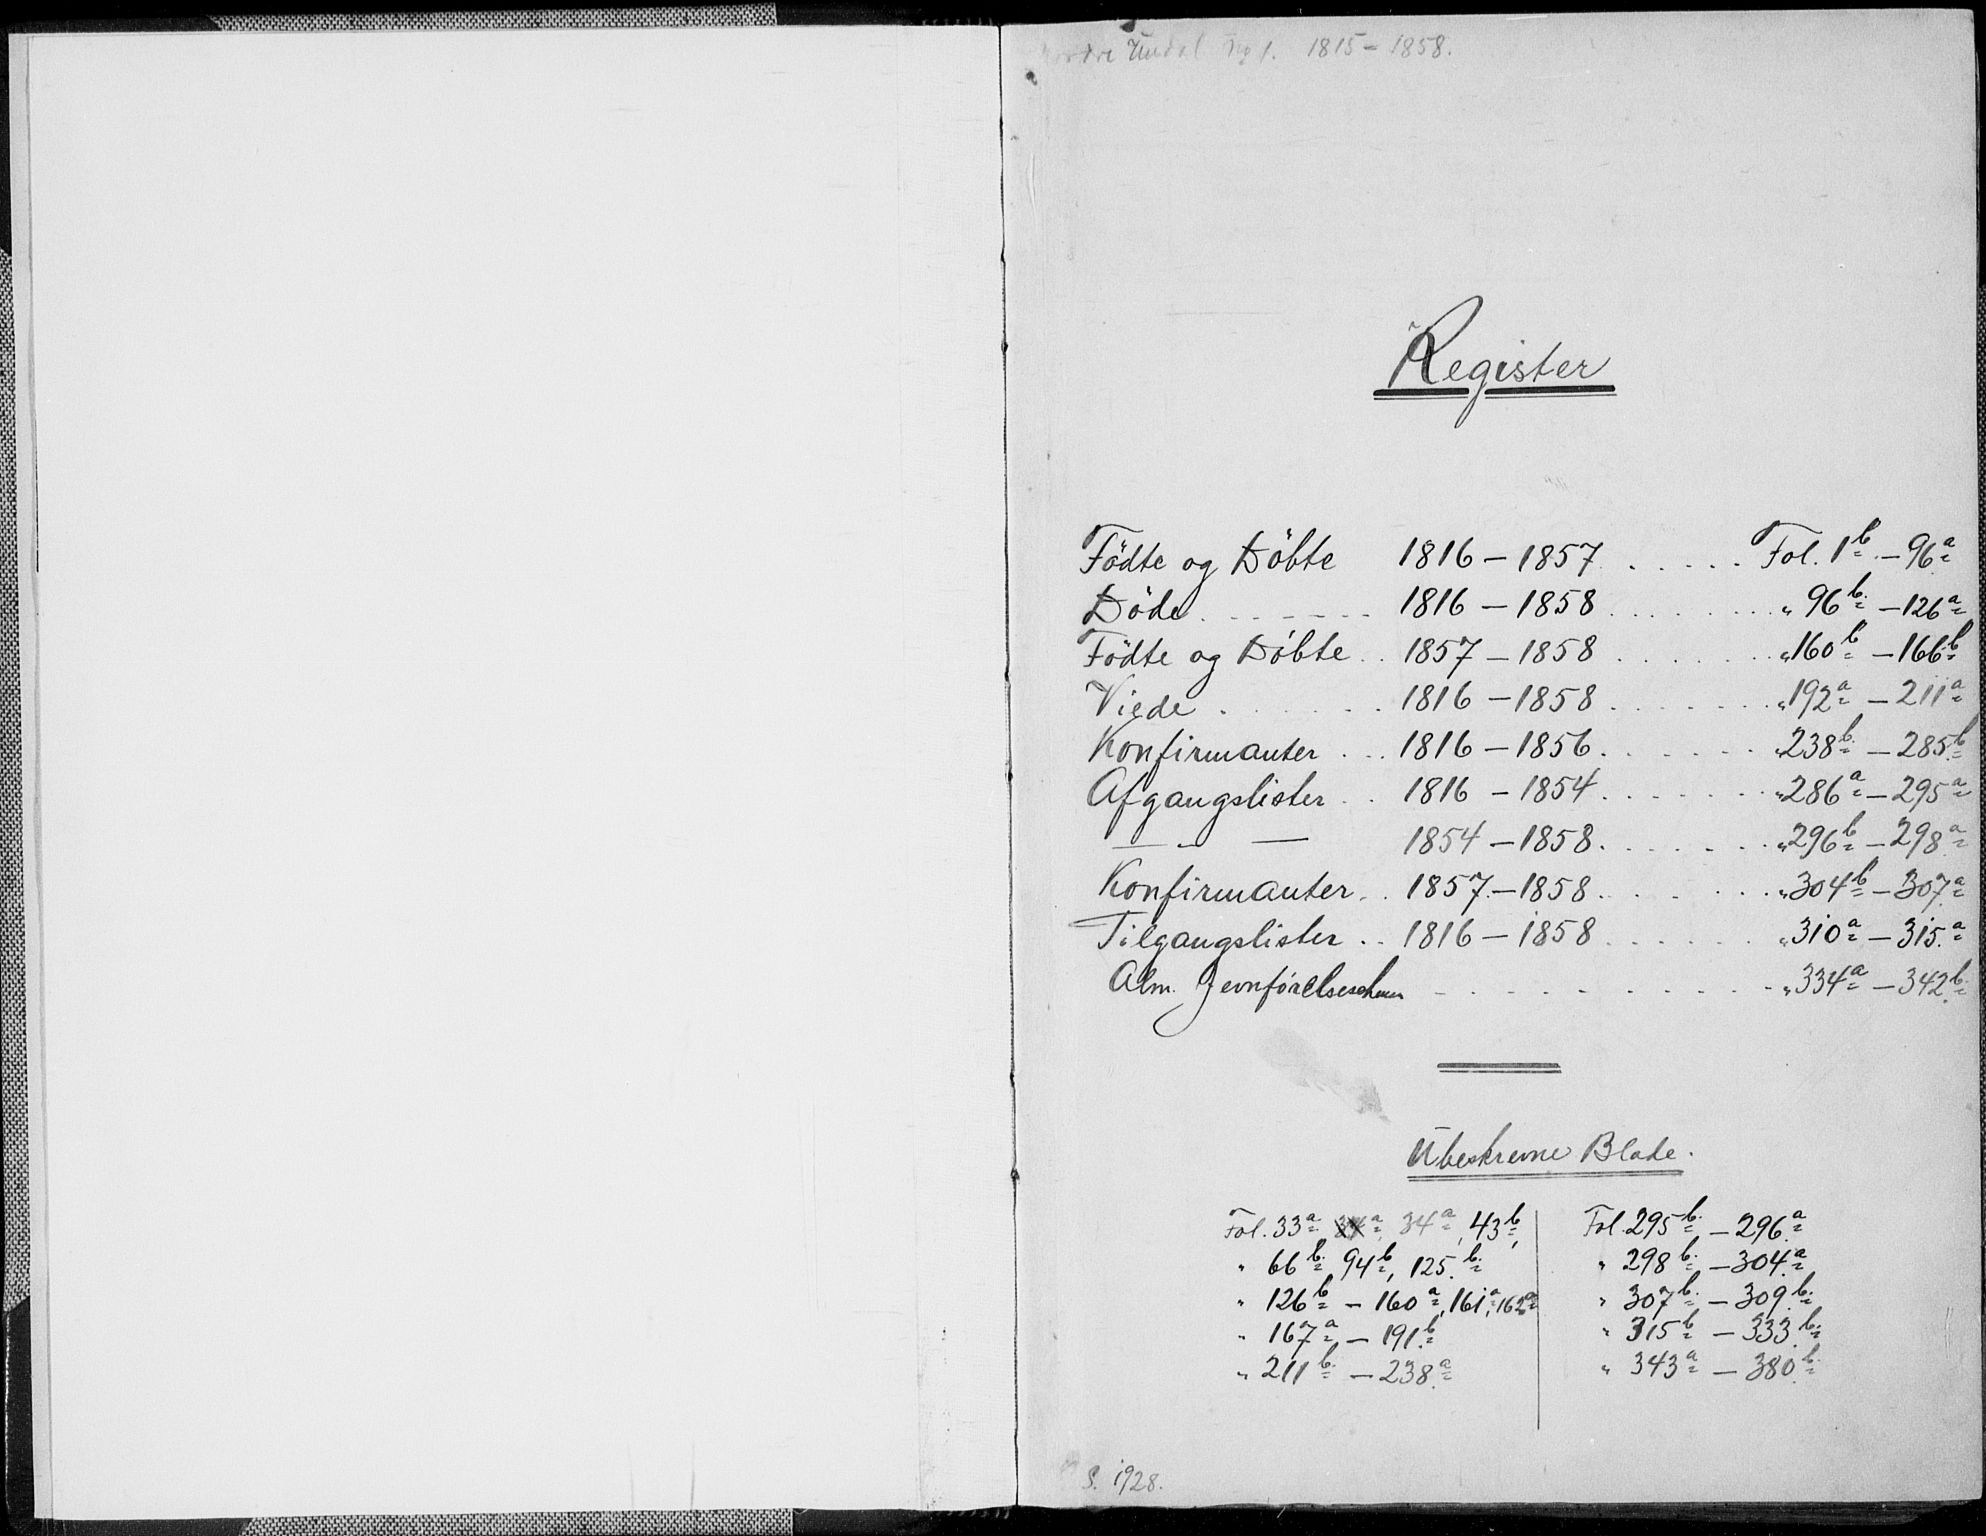 Undal 1815 – 1858.
Register
Födte og Döbte 1816 – 1857 . . . . . Fol. 1b – 96a
Döde . . . . . . . 1816 – 1858 . . . . . . . " 96b – 126a
Födte og Döbte . . 1857 – 1858 . . . . . . . " 160b – 166b
Viede . . . . . . . 1816 – 1858 . . . . . . . " 192a – 211a
Konfirmanter . . . 1816 – 1856 . . . . . . . " 238b – 285b
Afgangslister . . 1816 – 1854 . . . . . . . " 286a – 295a
— " — 1854 – 1858 . . . . . . . " 296b – 298a
Konfirmanter . . 1857 – 1858 . . . . . . . " 304b – 307a
Tilgangslister . . 1816 – 1858 . . . . . . . " 310a – 315a
Alm. Jevnförelseschem - - - - - - - - - - - " 334a – 342b
Ubeskrevne Blade.
Fol. 33a 34a, 34a, 43b,
" 66b, 94b, 125b
" 126b – 160a, 161a, 162a
" 167a – 191b
" 211b – 238a
Fol. 295b – 296a
" 298b – 304a
" 307b – 309b
" 315b – 333b
" 343a – 380b
S. 1928.